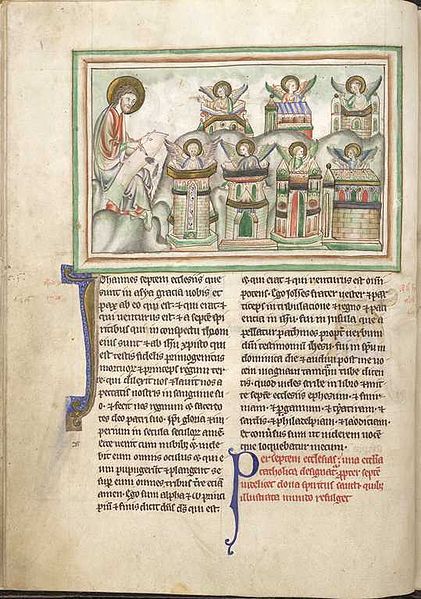 Johannes septem ecclesiis que
sunt in asya gracia vobis et
pax ab eo qui est & qui erat &
qui venturus est & a septe spi
ritibus qui in conspectu throni
eius sunt & ab ihu xpisto qui
est testis fidelis primogenitus
mortuorum & princeps regum ter
re qui dilexit nos & lavit nos a
peccatis nostris in sanguine su
o & fecit nos regnum & sacerdo
tes deo patri suo ipi gloria & im
perium in secula seculorum amen
ecce venit cum nubibus & vide
bit eum omnis oculus & qui
eum pupugerunt & plangent se
sup eum omnes tribus terre etiam
amen Ego sum alpha & ω princi
piu & finis dicit dns ds qui est
& qui erat & qui venturus est omni
potens Ego iohes frater vester & par
ticeps in tribulatione & regno & pati
encia in ihu fui in insula que a
pellatur pathmos propter verbum
dei & testimonium ihesu fui in spu in
dominica die & audivi post me vo
cem magnam tamquam tube dicen
tis quod vides scribe in libro & mit
te septe ecclesiis ephesum & smir
nam & pgamum & tyatiram &
sardis & philadelphiam & laodiciam
& conversus sum ut viderem vocem
que loquebatur mecum
Per septem ecclesias una ecclia
catholica designatur propter septe
videlicet dona spiritus sancti quibus
illustrata mundo refulget